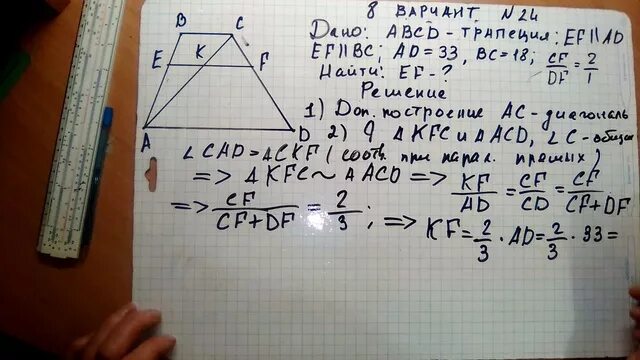 8 ВАРИАНТ N 24
Дано: ABCD - трапеция: EF || AD
EF || BC; AD = 33, BC = 18; CF/DF = 2/1
Найти: EF - ?
Решение
1) Доп. построение AC - диагональ
2) Δ KFC и Δ ACD, ∠C - общий
∠CAD = ∠CKF (соотв. при парал. прямых)
=> Δ KFC ~ Δ ACD => KF/AD = CF/CD = CF/CF+DF
=> CF/CF+DF = 2/3; => KF = 2/3 · AD = 2/3 · 33 =
B C
E K F
A D